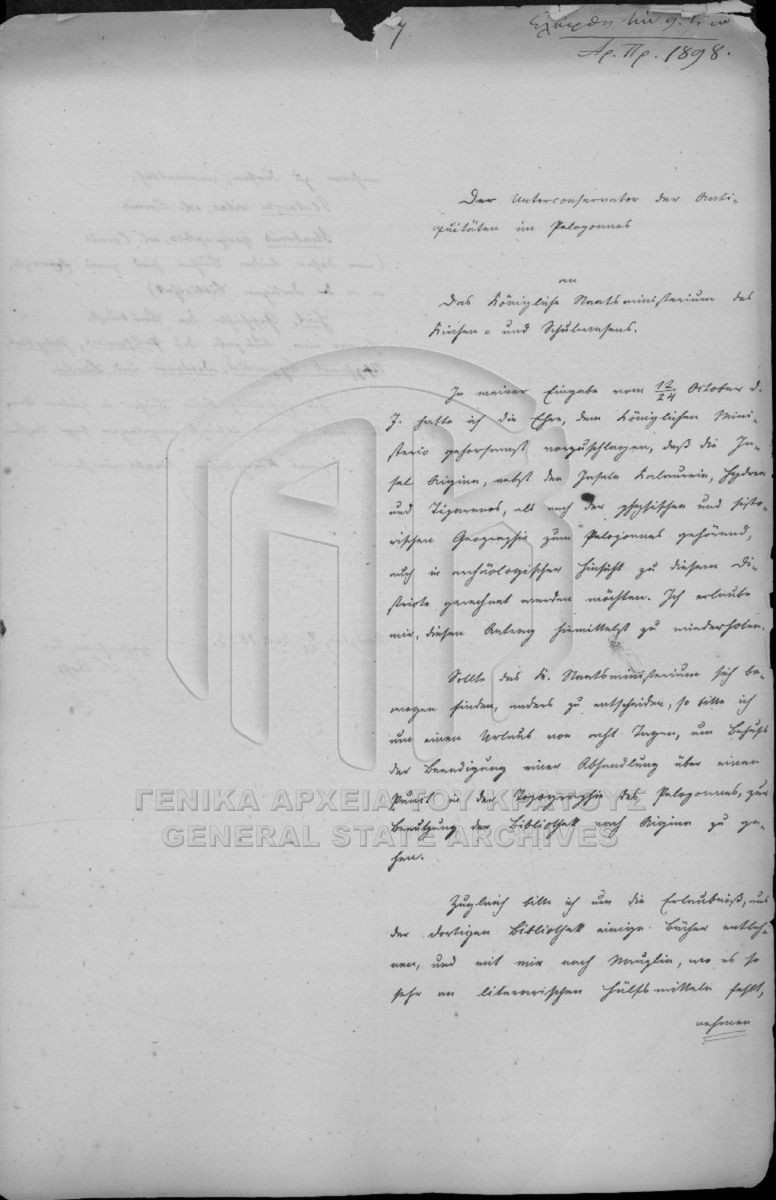 7
Ἐλήφθη τὴν 9.
Ἀρ. Πρ. 1898.
Der Unterconservator der Anti-
quitäten im Peloponnes
an
Das Königliche Staatsministerium des
Kirchen- und Schulwesens.
In meiner Eingabe vom 12/24 October d.
J. hatte ich die Ehre, dem Königlichen Mini-
sterio gehorsamst vorzuschlagen, daß die In-
sel Aigina, nebst den Inseln Kalaureia, Hydrea
und Tiparenos, als nach der physischen und histo-
rischen Geographie zum Peloponnes gehörend,
auch in archäologischer Hinsicht zu diesem Di-
stricte gerechnet werden möchten. Ich erlaube
mir, diesen Antrag hiemittelst zu wiederholen.
Sollte das K. Staatsministerium sich be-
wogen finden, anders zu entscheiden, so bitte ich
um einen Urlaub von acht Tagen, um Behufs
der Beendigung einer Abhandlung über einen
Punct in der Topographie des Peloponnes, zur
Benutzung der Bibliothek nach Aigina zu ge-
hen.
Zugleich bitte ich um die Erlaubniß, aus
der dortigen Bibliothek einige Bücher entleh-
nen, und mit mir nach Nauplia, wo es so
sehr an literarischen Hülfsmitteln fehlt,
nehmen
ΓΕΝΙΚΑ ΑΡΧΕΙΑ ΤΟΥ ΚΡΑΤΟΥΣ
GENERAL STATE ARCHIVES